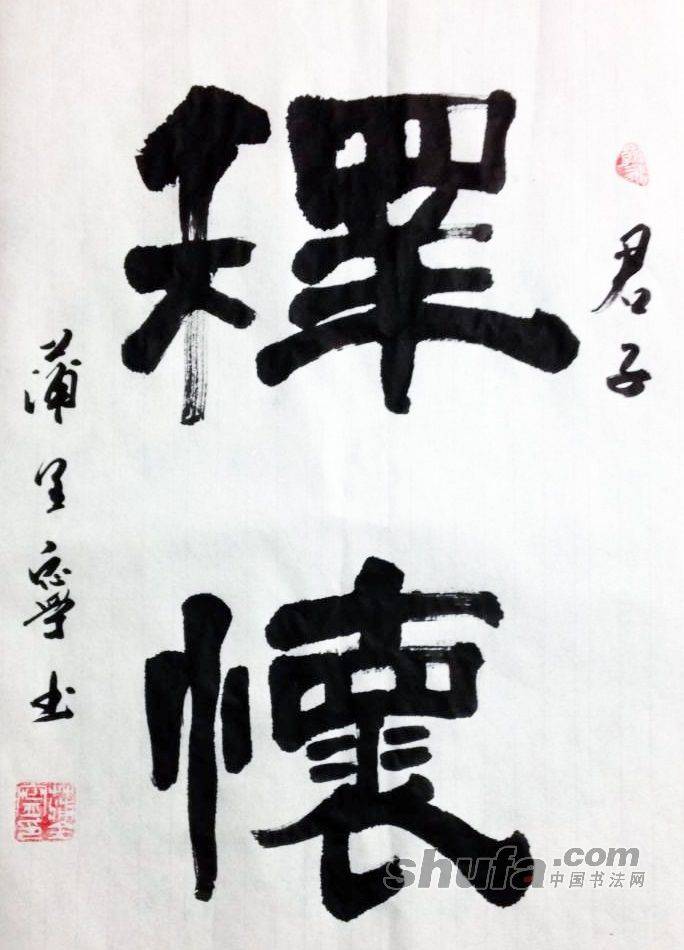 君子
釋懷
蒲呈慜學书
shufa.com
中国书法网